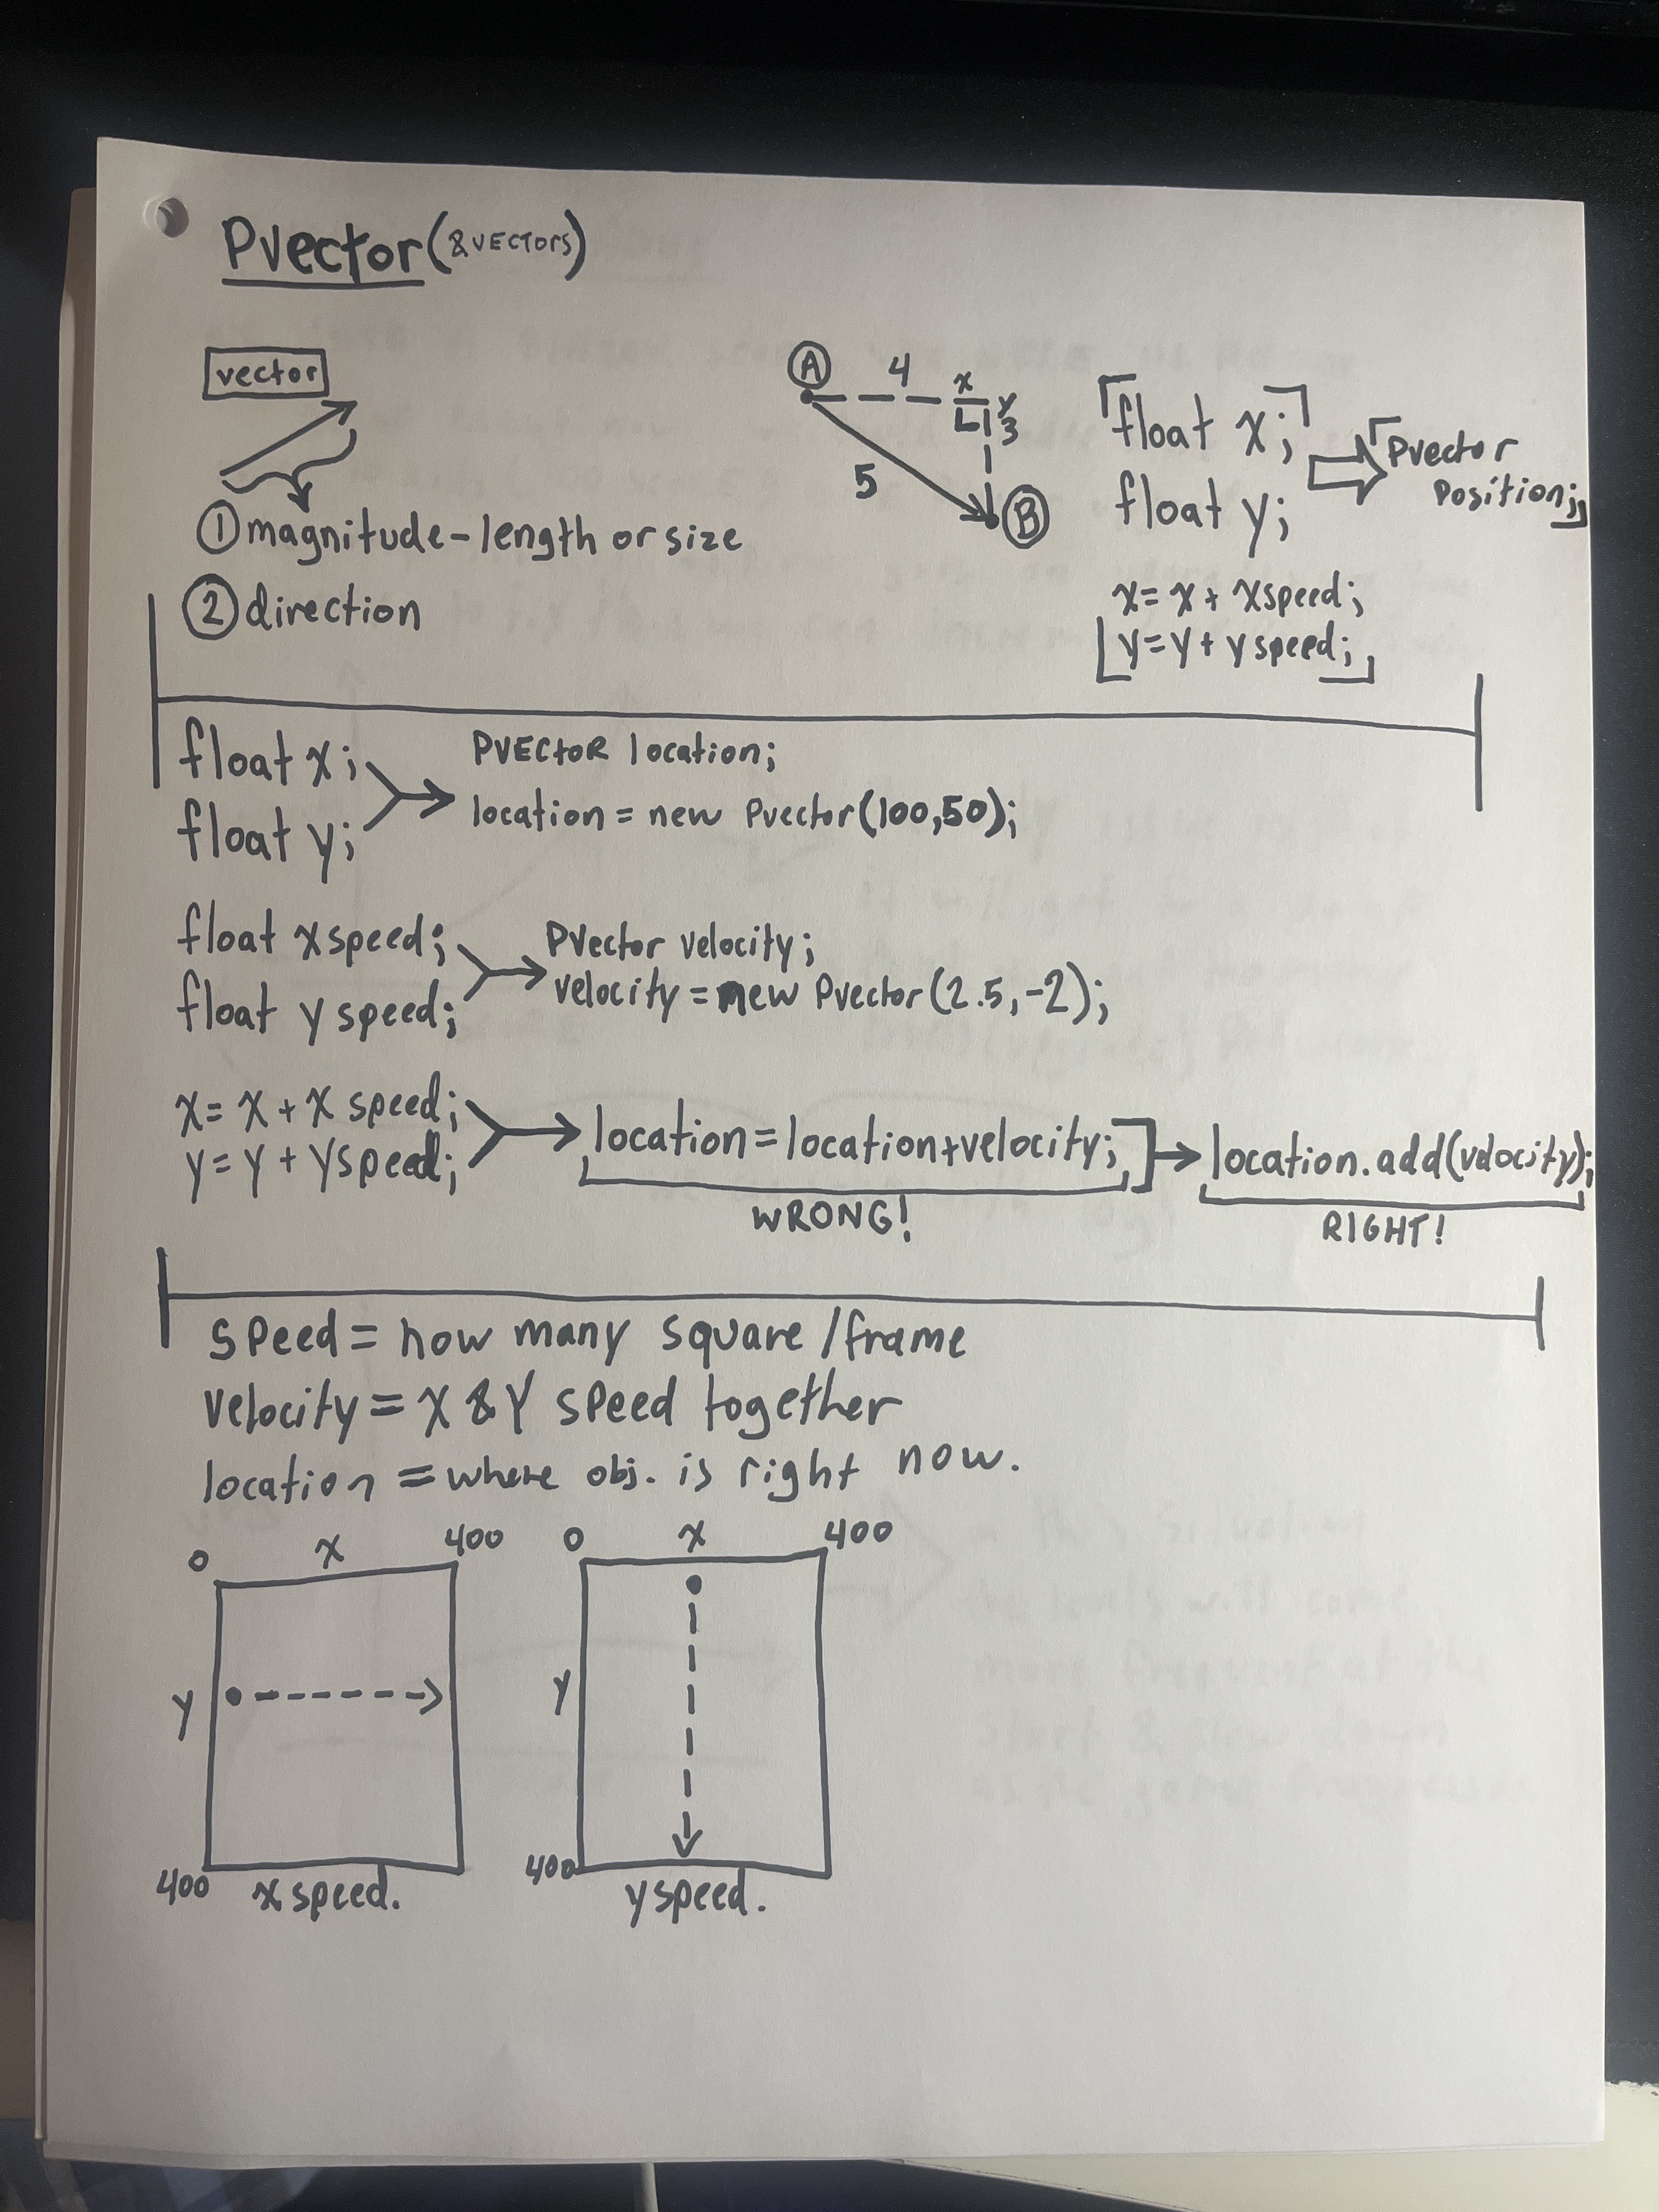 Pvector (& VECTORS)
vector
① magnitude - length or size
② direction
A
4
x
y
3
5
B
float x;
float y;
Pvector
Position;
x = x + xspeed;
y = y + yspeed;
float x;
float y;
PVECtoR location;
location = new Pvector(100,50);
float xspeed;
float yspeed;
PVector velocity;
velocity = new Pvector(2.5,-2);
x = x + x speed;
y = y + yspeed;
location = location + velocity;
WRONG!
location.add(velocity);
RIGHT!
speed = how many square /frame
velocity = X & Y speed together
location = where obj. is right now.
0 x 400
y
400
x speed.
0 x 400
y
400
y speed.